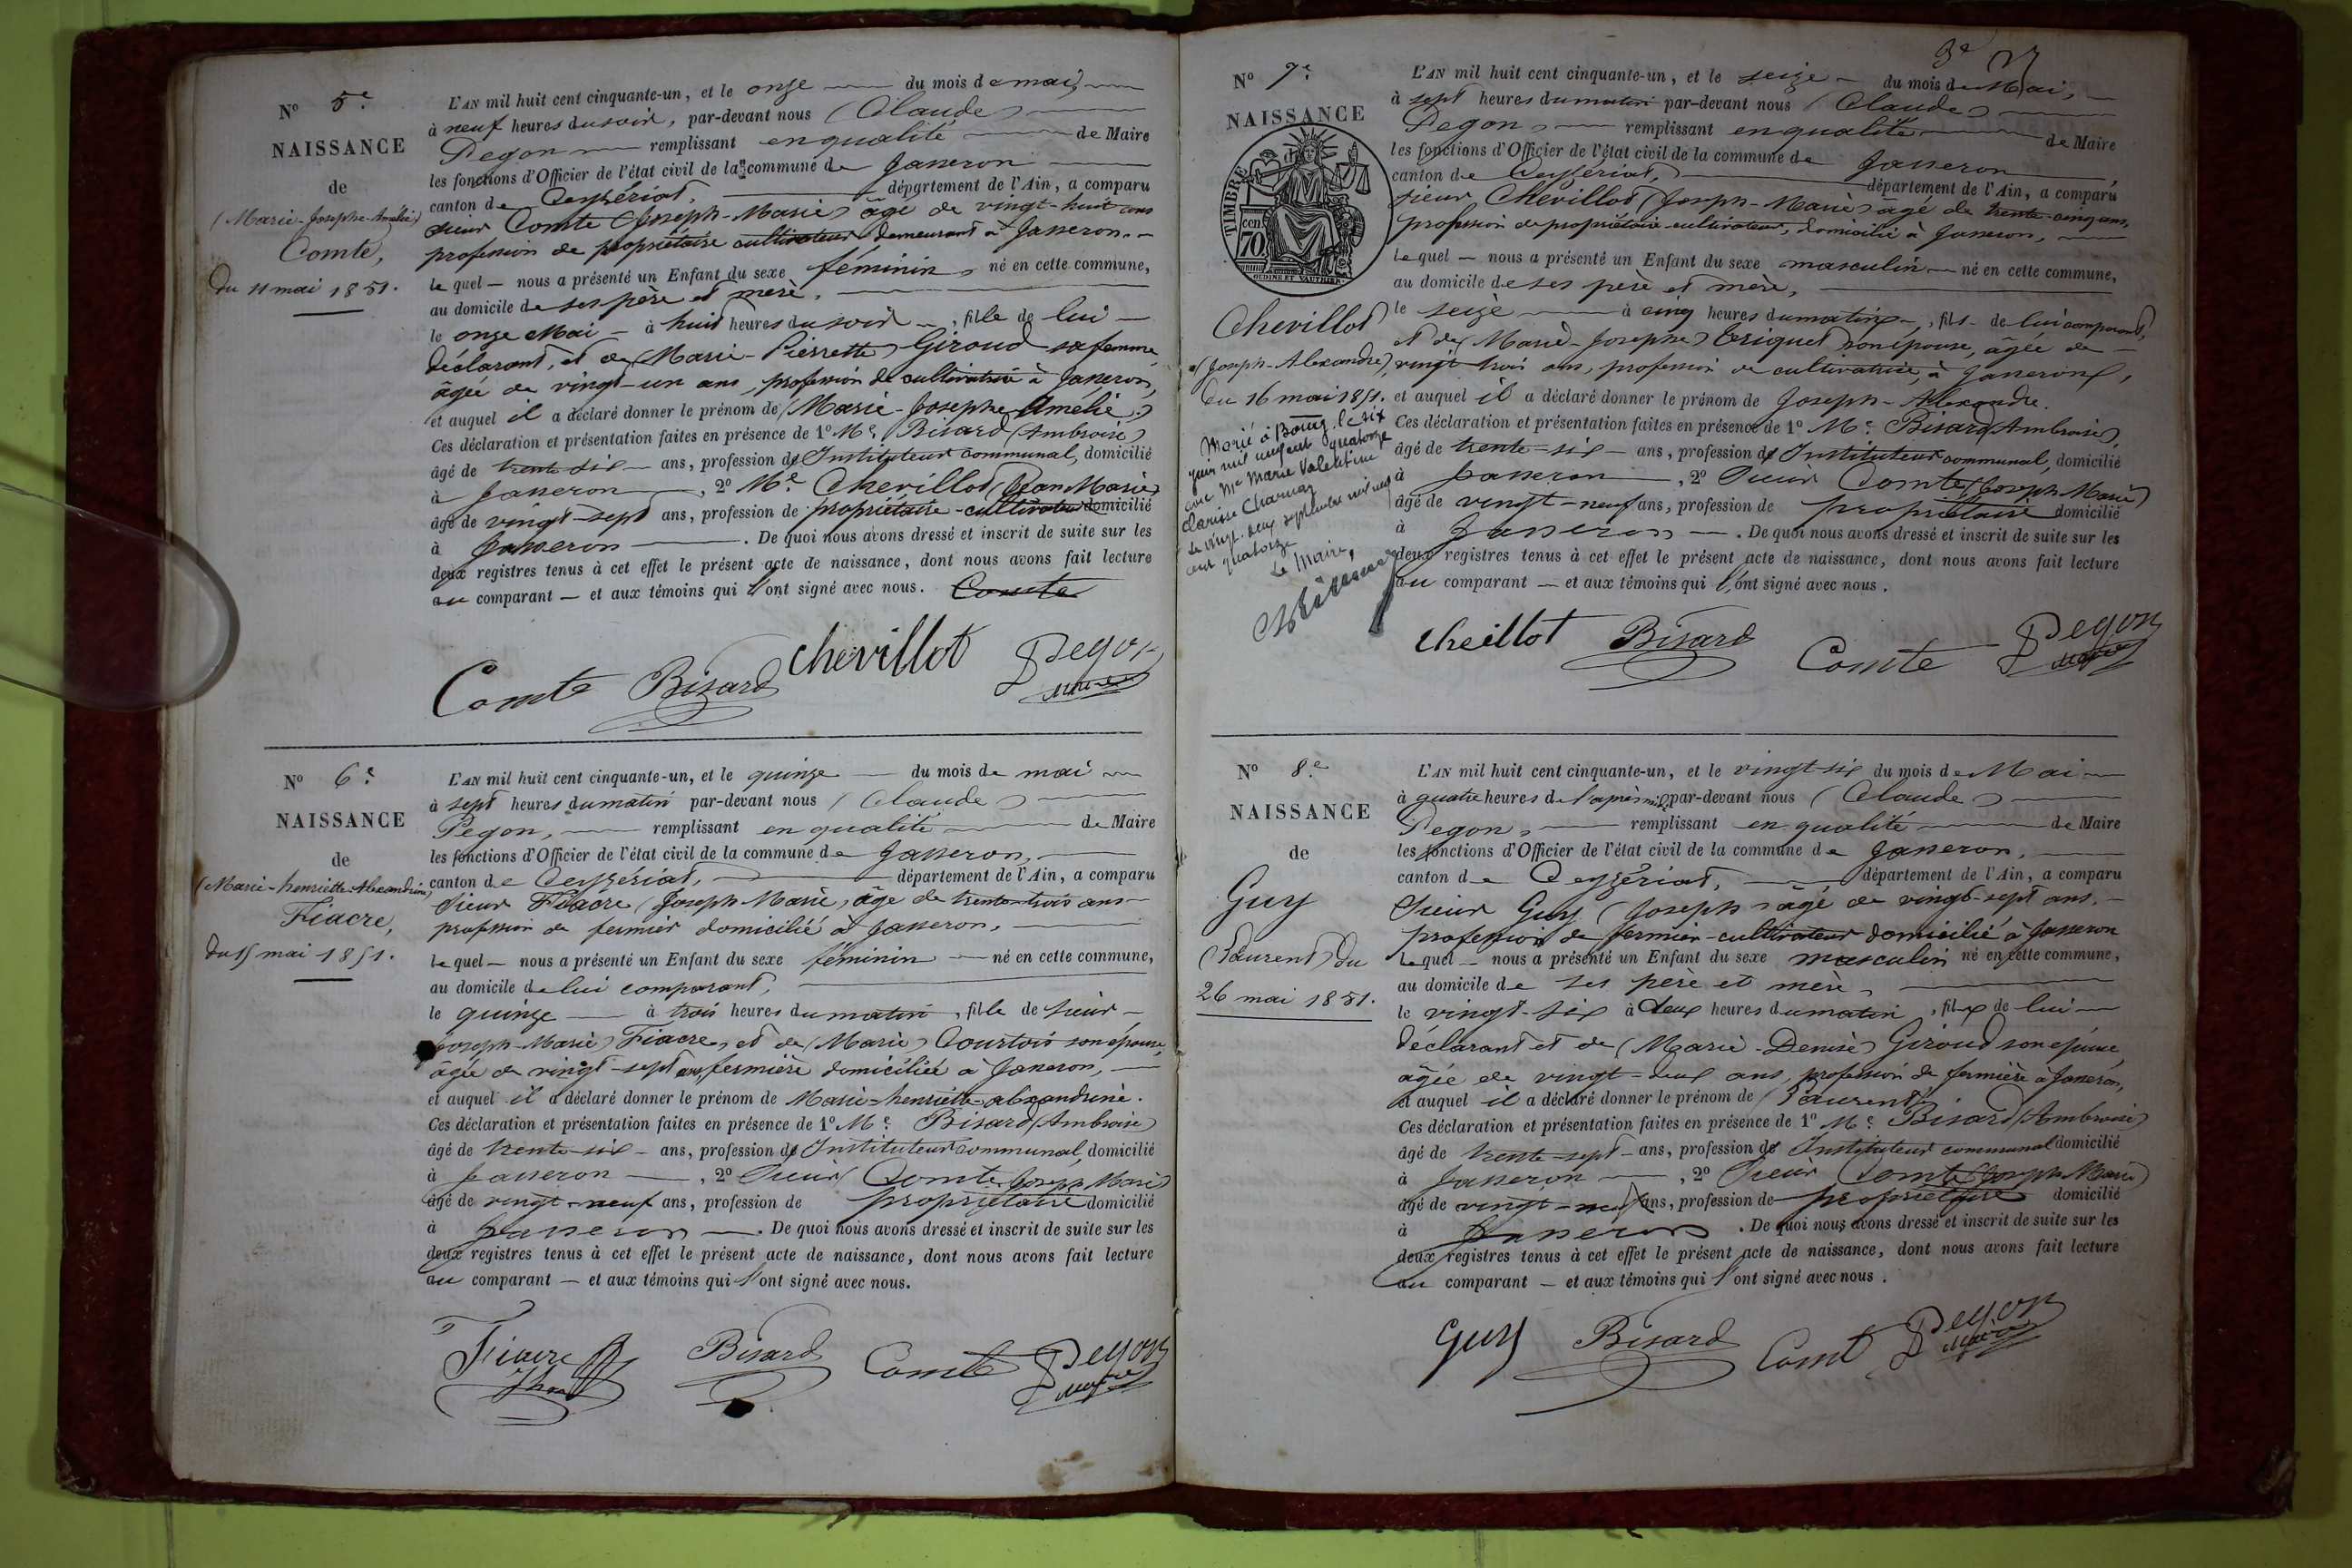 N° 5e
NAISSANCE
de
(Marie-Josephe-Amélie)
Comte,
du 11 mai 1851.
L'AN mil huit cent cinquante-un, et le onze du mois de mai,
à neuf heures du soir, par-devant nous (Claude)
Pegon remplissant en qualité de Maire
les fonctions d'Officier de l'état civil de la commune de Jasseron
canton de Ceyzériat, département de l'Ain, a comparu
sieur Comte (Joseph-Marie) âgé de vingt-huit ans
profession de propriétaire cultivateur demeurant à Jasseron.
le quel — nous a présenté un Enfant du sexe féminin, né en cette commune,
au domicile de ses père et mère,
le onze Mai — à huit heures du soir, fille de lui —
déclarant, et de (Marie-Pierrette) Giroud sa femme
âgée de vingt-un ans, profession de cultivatrice à Jasseron,
et auquel il a déclaré donner le prénom de (Marie-Josephe Amélie.)
Ces déclaration et présentation faites en présence de 1° Mr. Bisard (Ambroise)
âgé de trente-six — ans, profession de Instituteur communal, domicilié
à Jasseron, 2° Mr. Chevillot (Jean Marie)
âgé de vingt-sept ans, profession de propriétaire-cultivateur domicilié
à Jasseron. De quoi nous avons dressé et inscrit de suite sur les
deux registres tenus à cet effet le présent acte de naissance, dont nous avons fait lecture
au comparant — et aux témoins qui l'ont signé avec nous. Comte
Comte Bisard chevillot Pegon
maire
N° 6e
NAISSANCE
de
(Marie-henriette-Alexandrine)
Fiacre,
du 15 mai 1851.
L'AN mil huit cent cinquante-un, et le quinze du mois de mai
à sept heures du matin par-devant nous (Claude)
Pegon, remplissant en qualité de Maire
les fonctions d'Officier de l'état civil de la commune de Jasseron,
canton de Ceyzériat, département de l'Ain, a comparu
sieur Fiacre (Joseph Marie), âgé de trente-trois ans
profession de fermier domicilié à Jasseron,
le quel — nous a présenté un Enfant du sexe féminin — né en cette commune,
au domicile de lui comparant,
le quinze — à trois heures du matin, fille de sieur
(Joseph-Marie) Fiacre, et de (Marie) Courtois son épouse,
âgée de vingt-sept ans, fermière domiciliée à Jasseron,
et auquel il a déclaré donner le prénom de Marie-henriette-alexandrine.
Ces déclaration et présentation faites en présence de 1° Mr. Bisard (Ambroise)
âgé de trente-six — ans, profession de Instituteur communal, domicilié
à Jasseron, 2° Sieur Comte (Joseph Marie)
âgé de vingt-neuf ans, profession de propriétaire domicilié
à Jasseron. De quoi nous avons dressé et inscrit de suite sur les
deux registres tenus à cet effet le présent acte de naissance, dont nous avons fait lecture
au comparant — et aux témoins qui l'ont signé avec nous.
Fiacre Bisard Comte Pegon
maire
3e
N° 7e
NAISSANCE
TIMBRE
70
OUDINE ET VAUTHIER
Chevillot
(Joseph-Alexandre),
du 16 mai 1851.
Marié à Bourg le six
juin mil neuf cent quatorze
avec Me Marie Valentine
Clarisse Charnay
Le vingt-deux septembre mil neuf
cent quatorze
Le Maire,
L'AN mil huit cent cinquante-un, et le seize — du mois de Mai,
à sept heures du matin par-devant nous (Claude)
Pegon, remplissant en qualité de Maire
les fonctions d'Officier de l'état civil de la commune de Jasseron
canton de Ceyzériat, département de l'Ain, a comparu
sieur Chevillot (Joseph-Marie) âgé de trente-cinq ans,
profession de propriétaire-cultivateur, domicilié à Jasseron,
le quel — nous a présenté un Enfant du sexe masculin — né en cette commune,
au domicile de ses père et mère,
le seize à cinq heures du matin, fils de lui comparant,
et de (Marie-Josephe) Triquet son épouse, âgée de
vingt trois ans, profession de cultivatrice, à Jasseron,
et auquel il a déclaré donner le prénom de Joseph-Alexandre.
Ces déclaration et présentation faites en présence de 1° Mr. Bisard (Ambroise),
âgé de trente-six — ans, profession de Instituteur communal, domicilié
à Jasseron, 2° Sieur Comte (Joseph Marie)
âgé de vingt-neuf ans, profession de propriétaire domicilié
à Jasseron —. De quoi nous avons dressé et inscrit de suite sur les
deux registres tenus à cet effet le présent acte de naissance, dont nous avons fait lecture
au comparant — et aux témoins qui l'ont signé avec nous.
cheillot Bisard Comte Pegon
maire
N° 8e
NAISSANCE
de
Guy
(Laurent) du
26 mai 1851.
L'AN mil huit cent cinquante-un, et le vingt-six du mois de Mai
à quatre heures de l'après midi par-devant nous (Claude)
Pegon, remplissant en qualité de Maire
les fonctions d'Officier de l'état civil de la commune de Jasseron,
canton de Ceyzériat, département de l'Ain, a comparu
Sieur Guy (Joseph) âgé de vingt-sept ans,
profession de fermier-cultivateur domicilié à Jasseron
le quel — nous a présenté un Enfant du sexe masculin né en cette commune,
au domicile de ses père et mère,
le vingt-six à deux heures du matin, fils de lui
déclarant et de (Marie-Denise) Giroud son épouse,
âgée de vingt-deux ans, profession de fermière à Jasseron,
et auquel il a déclaré donner le prénom de (Laurent)
Ces déclaration et présentation faites en présence de 1° Mr. Bisard (Ambroise)
âgé de trente-sept — ans, profession de Instituteur communal domicilié
à Jasseron, 2° Sieur Comte (Joseph Marie)
âgé de vingt-neuf ans, profession de propriétaire domicilié
à Jasseron. De quoi nous avons dressé et inscrit de suite sur les
deux registres tenus à cet effet le présent acte de naissance, dont nous avons fait lecture
au comparant — et aux témoins qui l'ont signé avec nous.
Guy Bisard Comt Pegon
maire